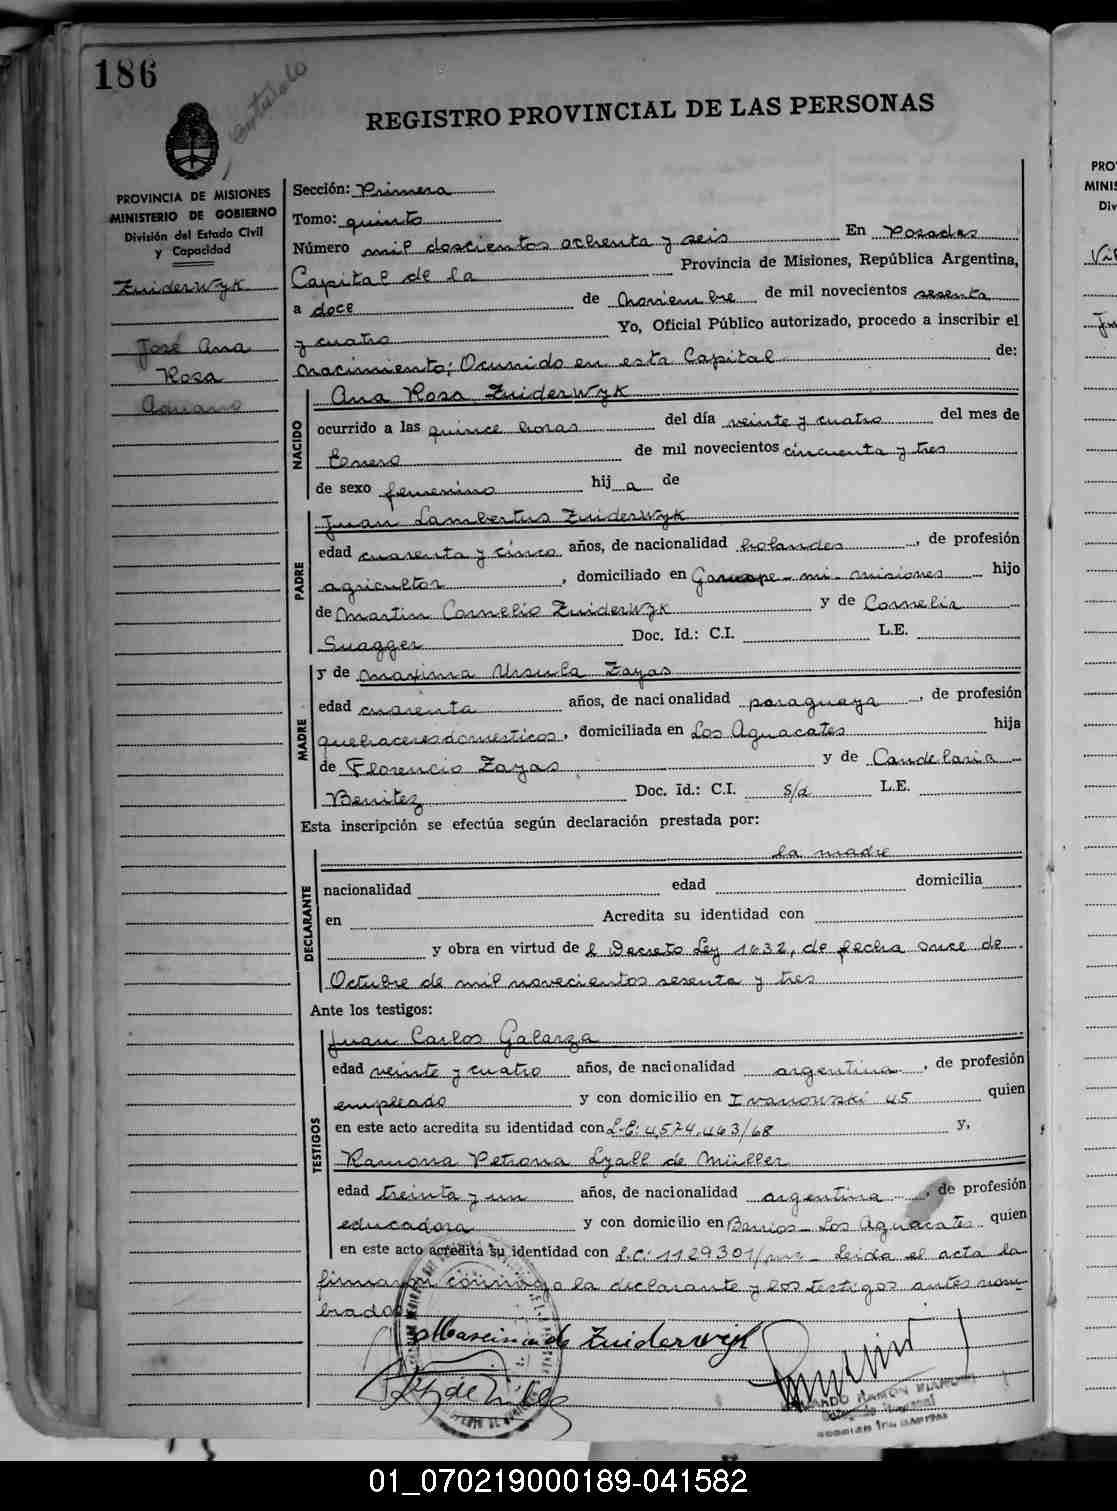 186
REGISTRO PROVINCIAL DE LAS PERSONAS
PROVINCIA DE MISIONES
MINISTERIO DE GOBIERNO
División del Estado Civil
y Capacidad
Zuiderwyk
José Ana
Rosa
Adriano
Sección: Primera
Tomo: quinto
Número mil doscientos ochenta y seis En Posadas
Capital de la Provincia de Misiones, República Argentina,
a doce de Noviembre de mil novecientos sesenta
y cuatro Yo, Oficial Público autorizado, procedo a inscribir el
Nacimiento; Ocurrido en esta Capital de:
NACIDO
Ana Rosa Zuiderwyk
ocurrido a las quince horas del día veinte y cuatro del mes de
Enero de mil novecientos cincuenta y tres
de sexo femenino hij a de
PADRE
Juan Lambertus Zuiderwyk
edad cuarenta y cinco años, de nacionalidad holandes, de profesión
agricultor, domiciliado en Garuape - mi - misiones hijo
de Martin Cornelio Zuiderwyk y de Cornelia
Suagger Doc. Id.: C.I. L.E.
MADRE
y de Maxima Ursula Zayas
edad cuarenta años, de nacionalidad paraguaya, de profesión
quehaceres domesticos, domiciliada en Los Aguacates hija
de Florencio Zayas y de Candelaria
Benitez Doc. Id.: C.I. S/d L.E.
Esta inscripción se efectúa según declaración prestada por:
DECLARANTE
la madre
nacionalidad edad domicilia
en Acredita su identidad con
y obra en virtud de l Decreto Ley 1632, de fecha once de
Octubre de mil novecientos sesenta y tres
Ante los testigos:
TESTIGOS
Juan Carlos Galarza
edad veinte y cuatro años, de nacionalidad argentina, de profesión
empleado y con domicilio en Ivanowski 45 quien
en este acto acredita su identidad con L.E: 4,574.463/68 y,
Ramona Petrona Lyall de Müller
edad treinta y un años, de nacionalidad argentina, de profesión
educadora y con domicilio en Barrios - Los Aguacates quien
en este acto acredita su identidad con L.C: 1129301/mis - Leida el acta la
firmaron conmigo la declarante y los testigos antes nom-
brados
Mascimade Zuiderwijk
RAMON
01_070219000189-041582